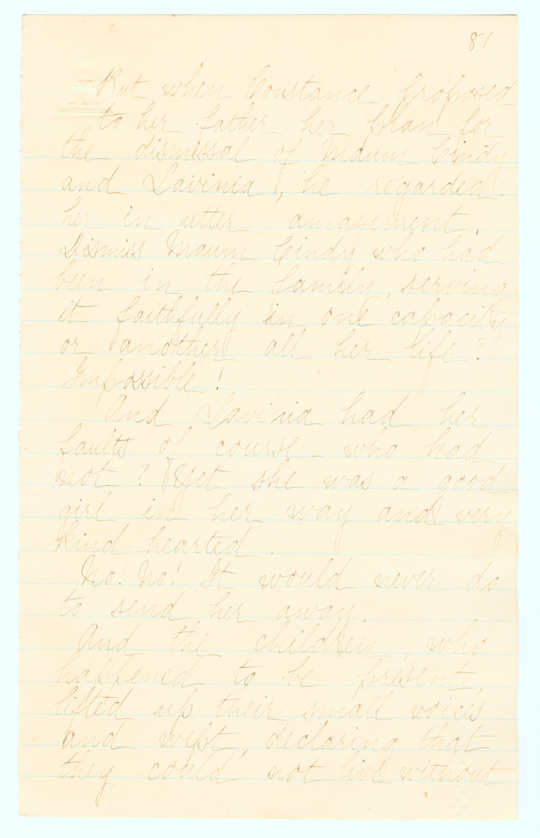 81
But when Constance proposed
to her father her plan for
the dismissal of Maum Cindy
and Lavinia, he regarded
her in utter amazement.
Dismiss Maum Cindy who had
been in the family, serving
it faithfully in one capacity
or another all her life?
Impossible!
And Lavinia had her
faults of course - who had
not? Yet she was a good
girl in her way and very
kind hearted.
No! No! It would never do
to send her away.
And the children, who
happened to be present,
lifted up their small voices
and wept, declaring that
they could not live without